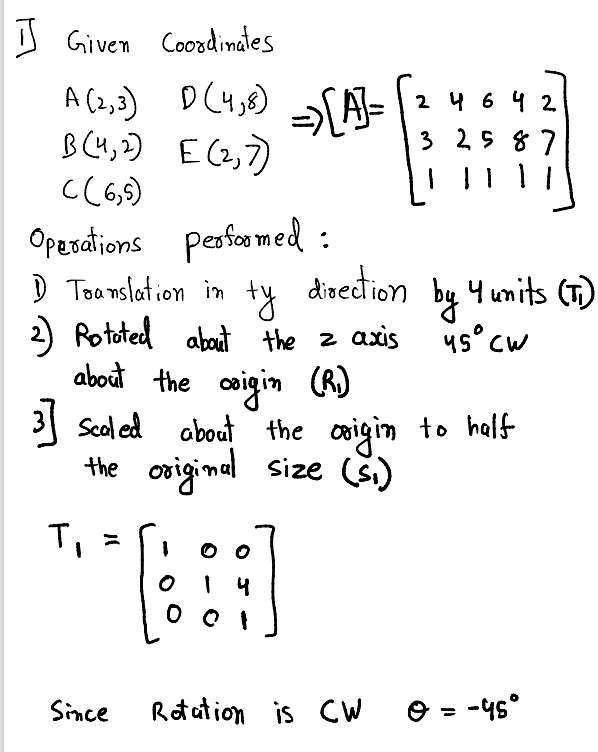 1] Given Coordinates
A(2,3) D(4,8) ⇒ [A] = [2 4 6 4 2
B(4,2) E(2,7) 3 2 5 8 7
C(6,5) 1 1 1 1 1]
Operations performed :
1) Translation in ty direction by 4 units (T₁)
2) Rotated about the z axis 45° CW
about the origin (R₁)
3] Scaled about the origin to half
the original size (S₁)
T₁ = [1 0 0
0 1 4
0 0 1]
Since Rotation is CW θ = -45°